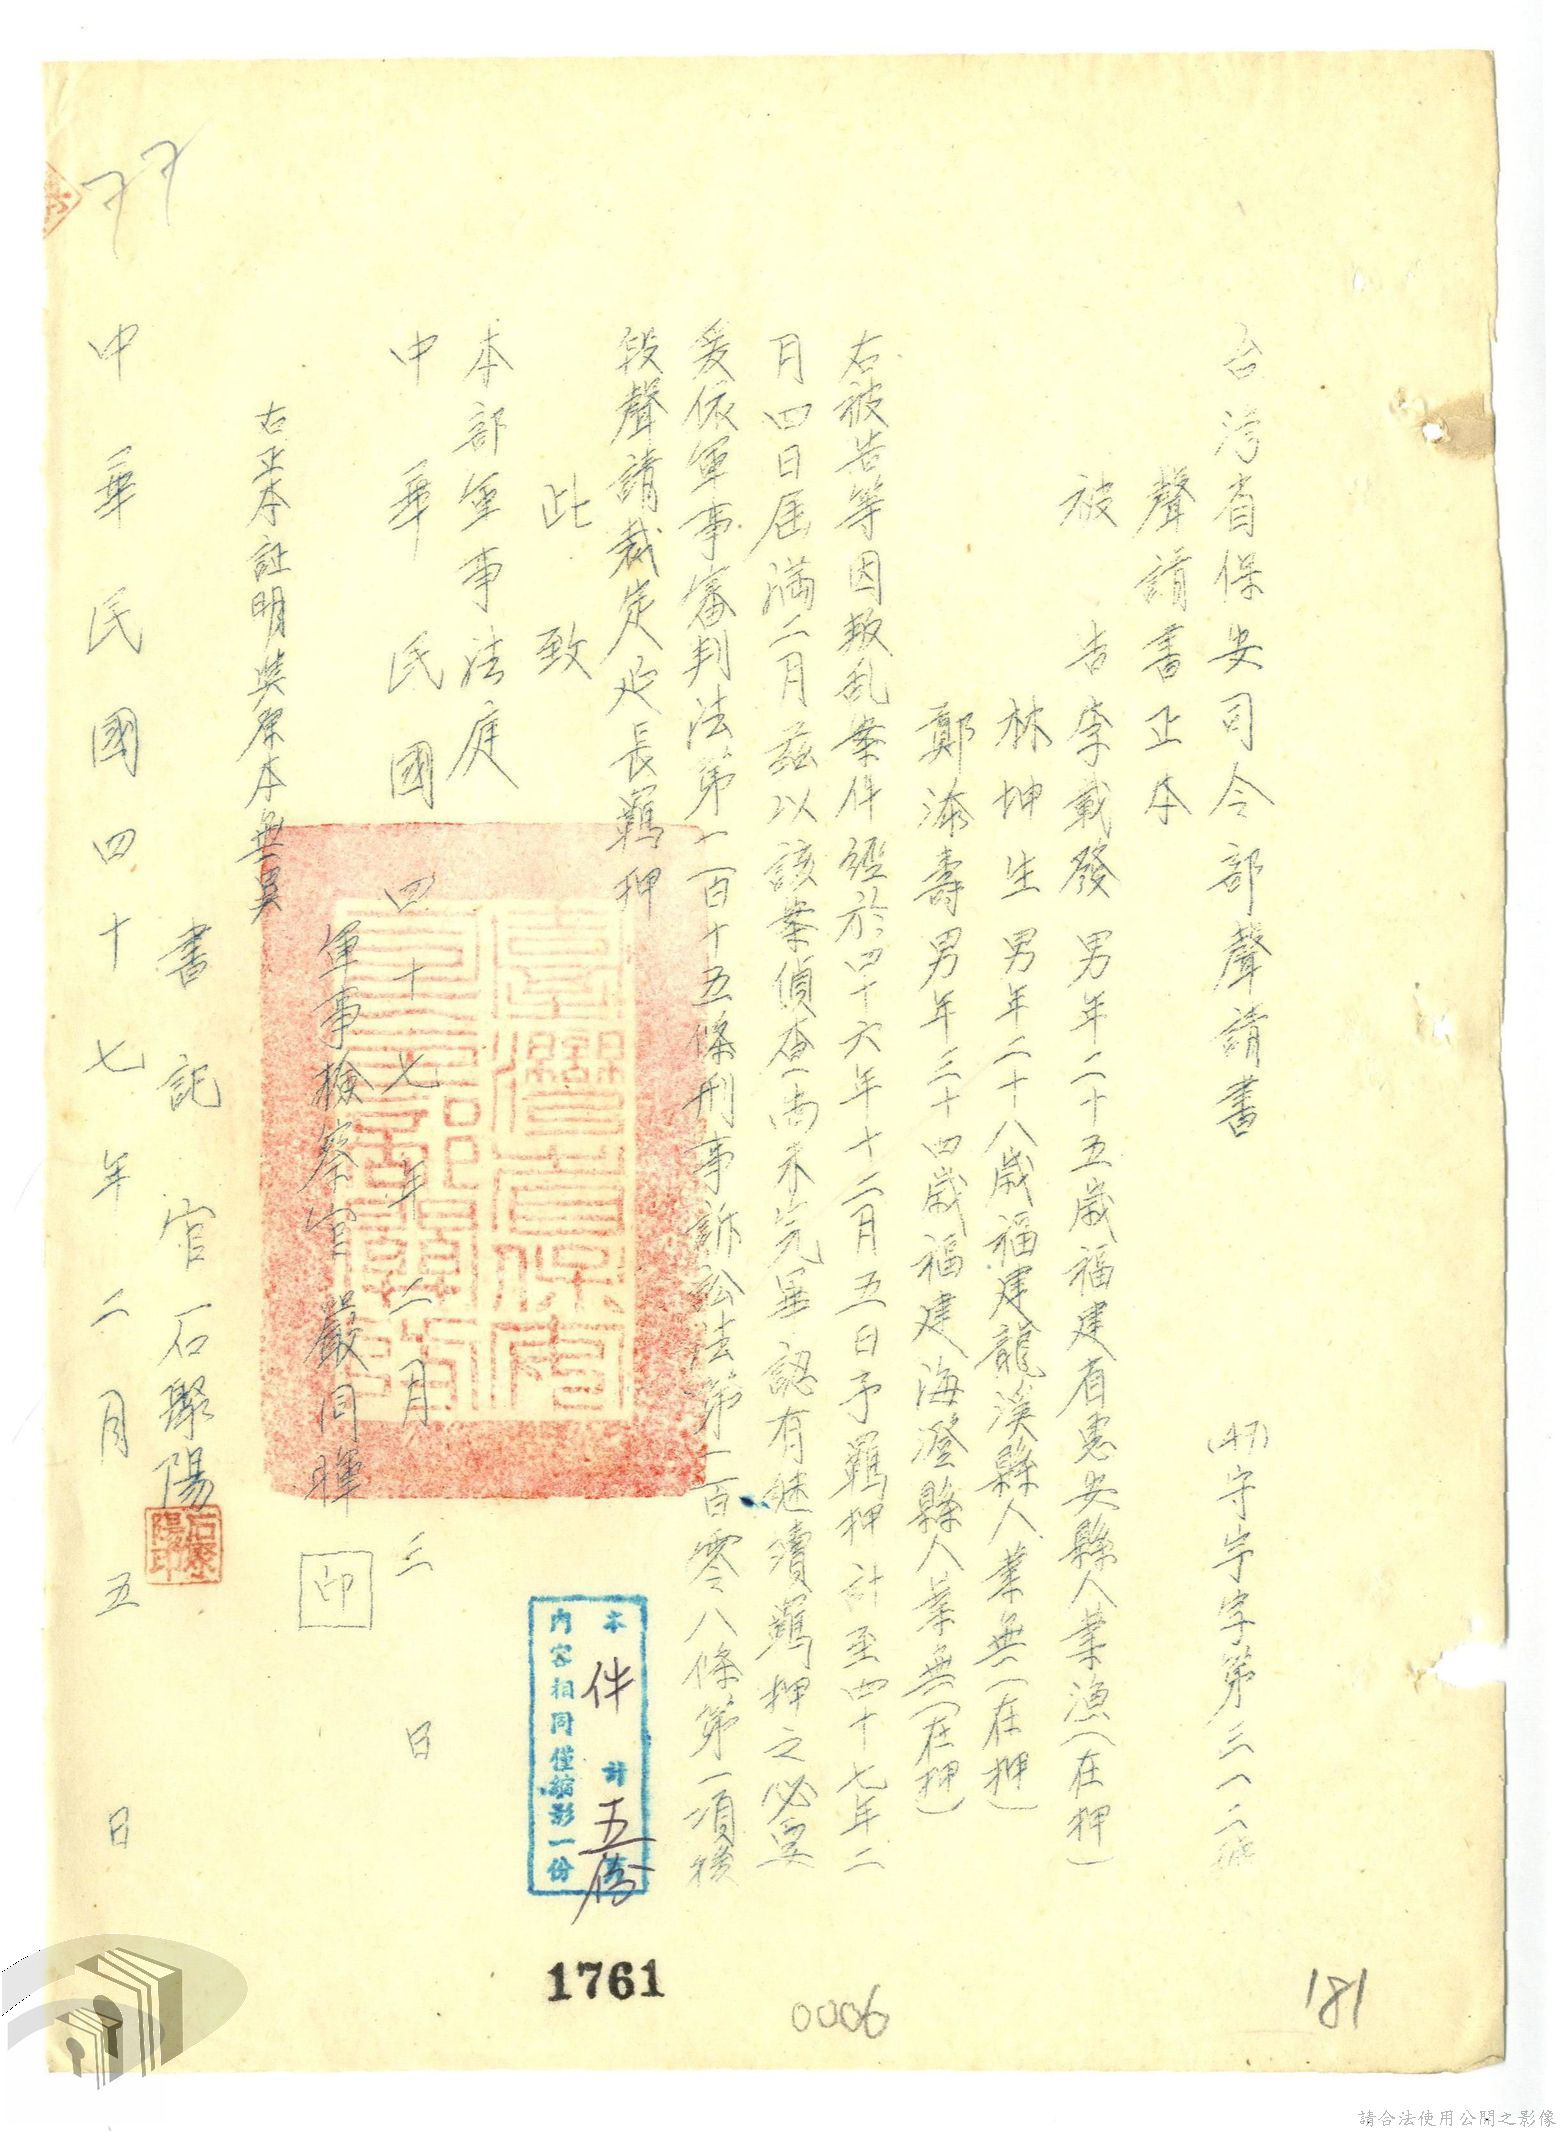 台湾省保安司令部聲請書
(47)守字字第三一二號
聲請書正本
被告李載發 男年二十五歲福建省惠安縣人業漁(在押)
林坤生 男年二十八歲福建龍溪縣人業無(在押)
鄭添壽 男年三十四歲福建海澄縣人業無(在押)
右被告等因叛乱案件經於四十六年十二月五日予羈押計至四十七年二
月四日屆滿二月茲以該案偵查尚未完畢認有継續羈押之必要
爰依軍事審判法第一百十五條刑事訴訟法第一百零八條第一項後
段聲請裁定延長羈押
此致
本部軍事法庭
中華民國四十七年二月三日
軍事檢察官 嚴同暉 印
右正本証明與原本無異
書記官石聚陽
石聚陽印
中華民國四十七年二月五日
77
臺灣省保安司令部
本件計五份
內容相同僅縮影一份
1761
0006
181
請合法使用公開之影像